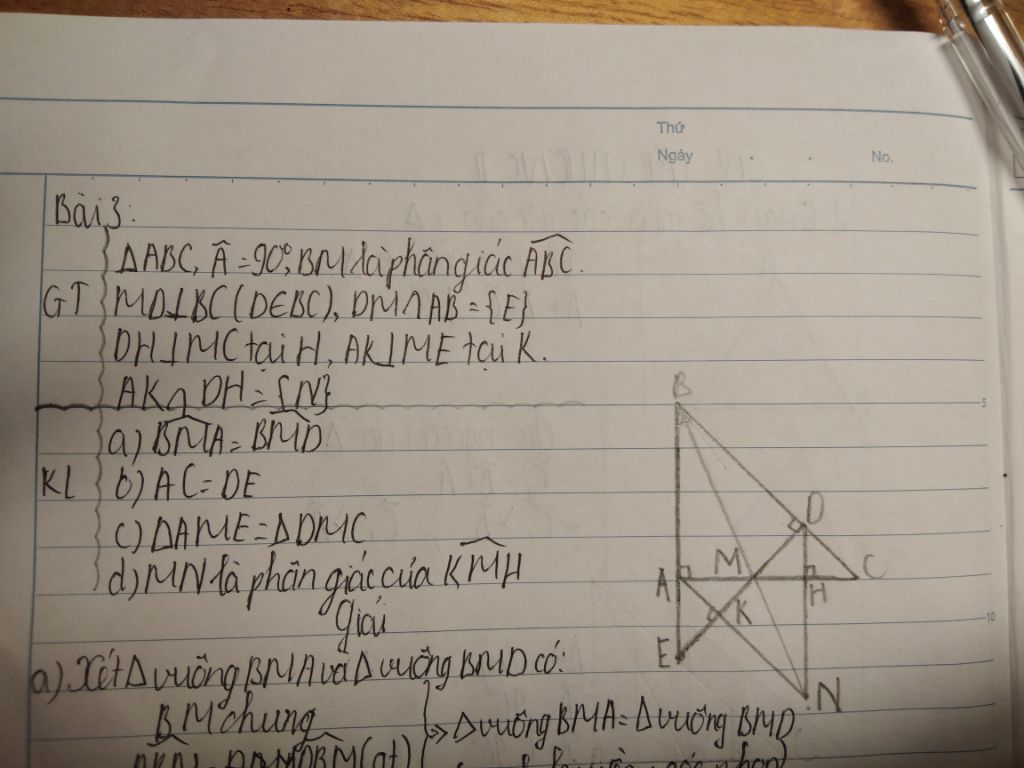 Thứ
Ngày . . No.
Bài 3:
ΔABC, Â = 90°, BM là phân giác ABC.
GT MD⊥BC (D∈BC), DM∩AB = {E}
DH⊥MC tại H, AK⊥ME tại K.
AK∩DH = {N}
a) BMA = BMD
KL b) AC = DE
c) ΔAME = ΔDMC
d) MN là phân giác của KMH
Giải
a) Xét Δ vuông BMA và Δ vuông BMD có:
BM chung
⇒ Δ vuông BMA = Δ vuông BMD
(gt)
B
D
M
C
A
H
K
E
N
5
10